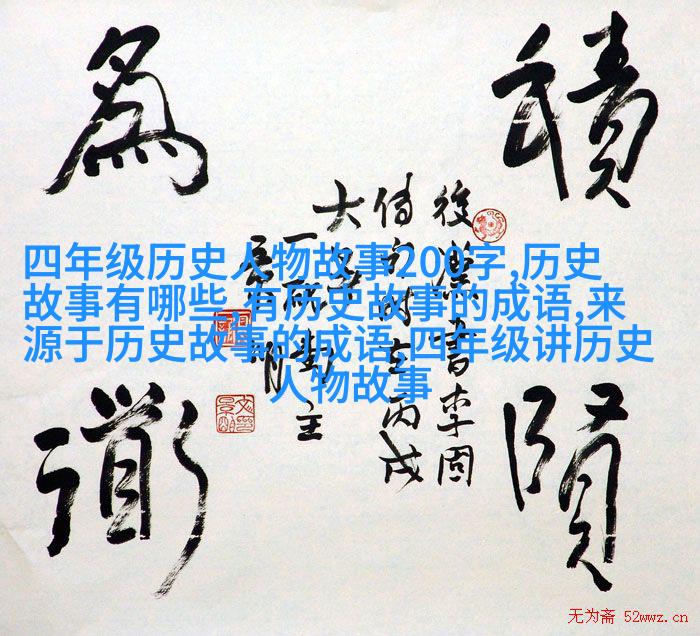 積賢
為衜
後漢書李固
傳句時在丙戌
四年级历史人物故事200字,历史
故事有哪些,有历史故事的成语,来
源于历史故事的成语,四年级讲历史
人物故事
无为斋 52wwz.cn